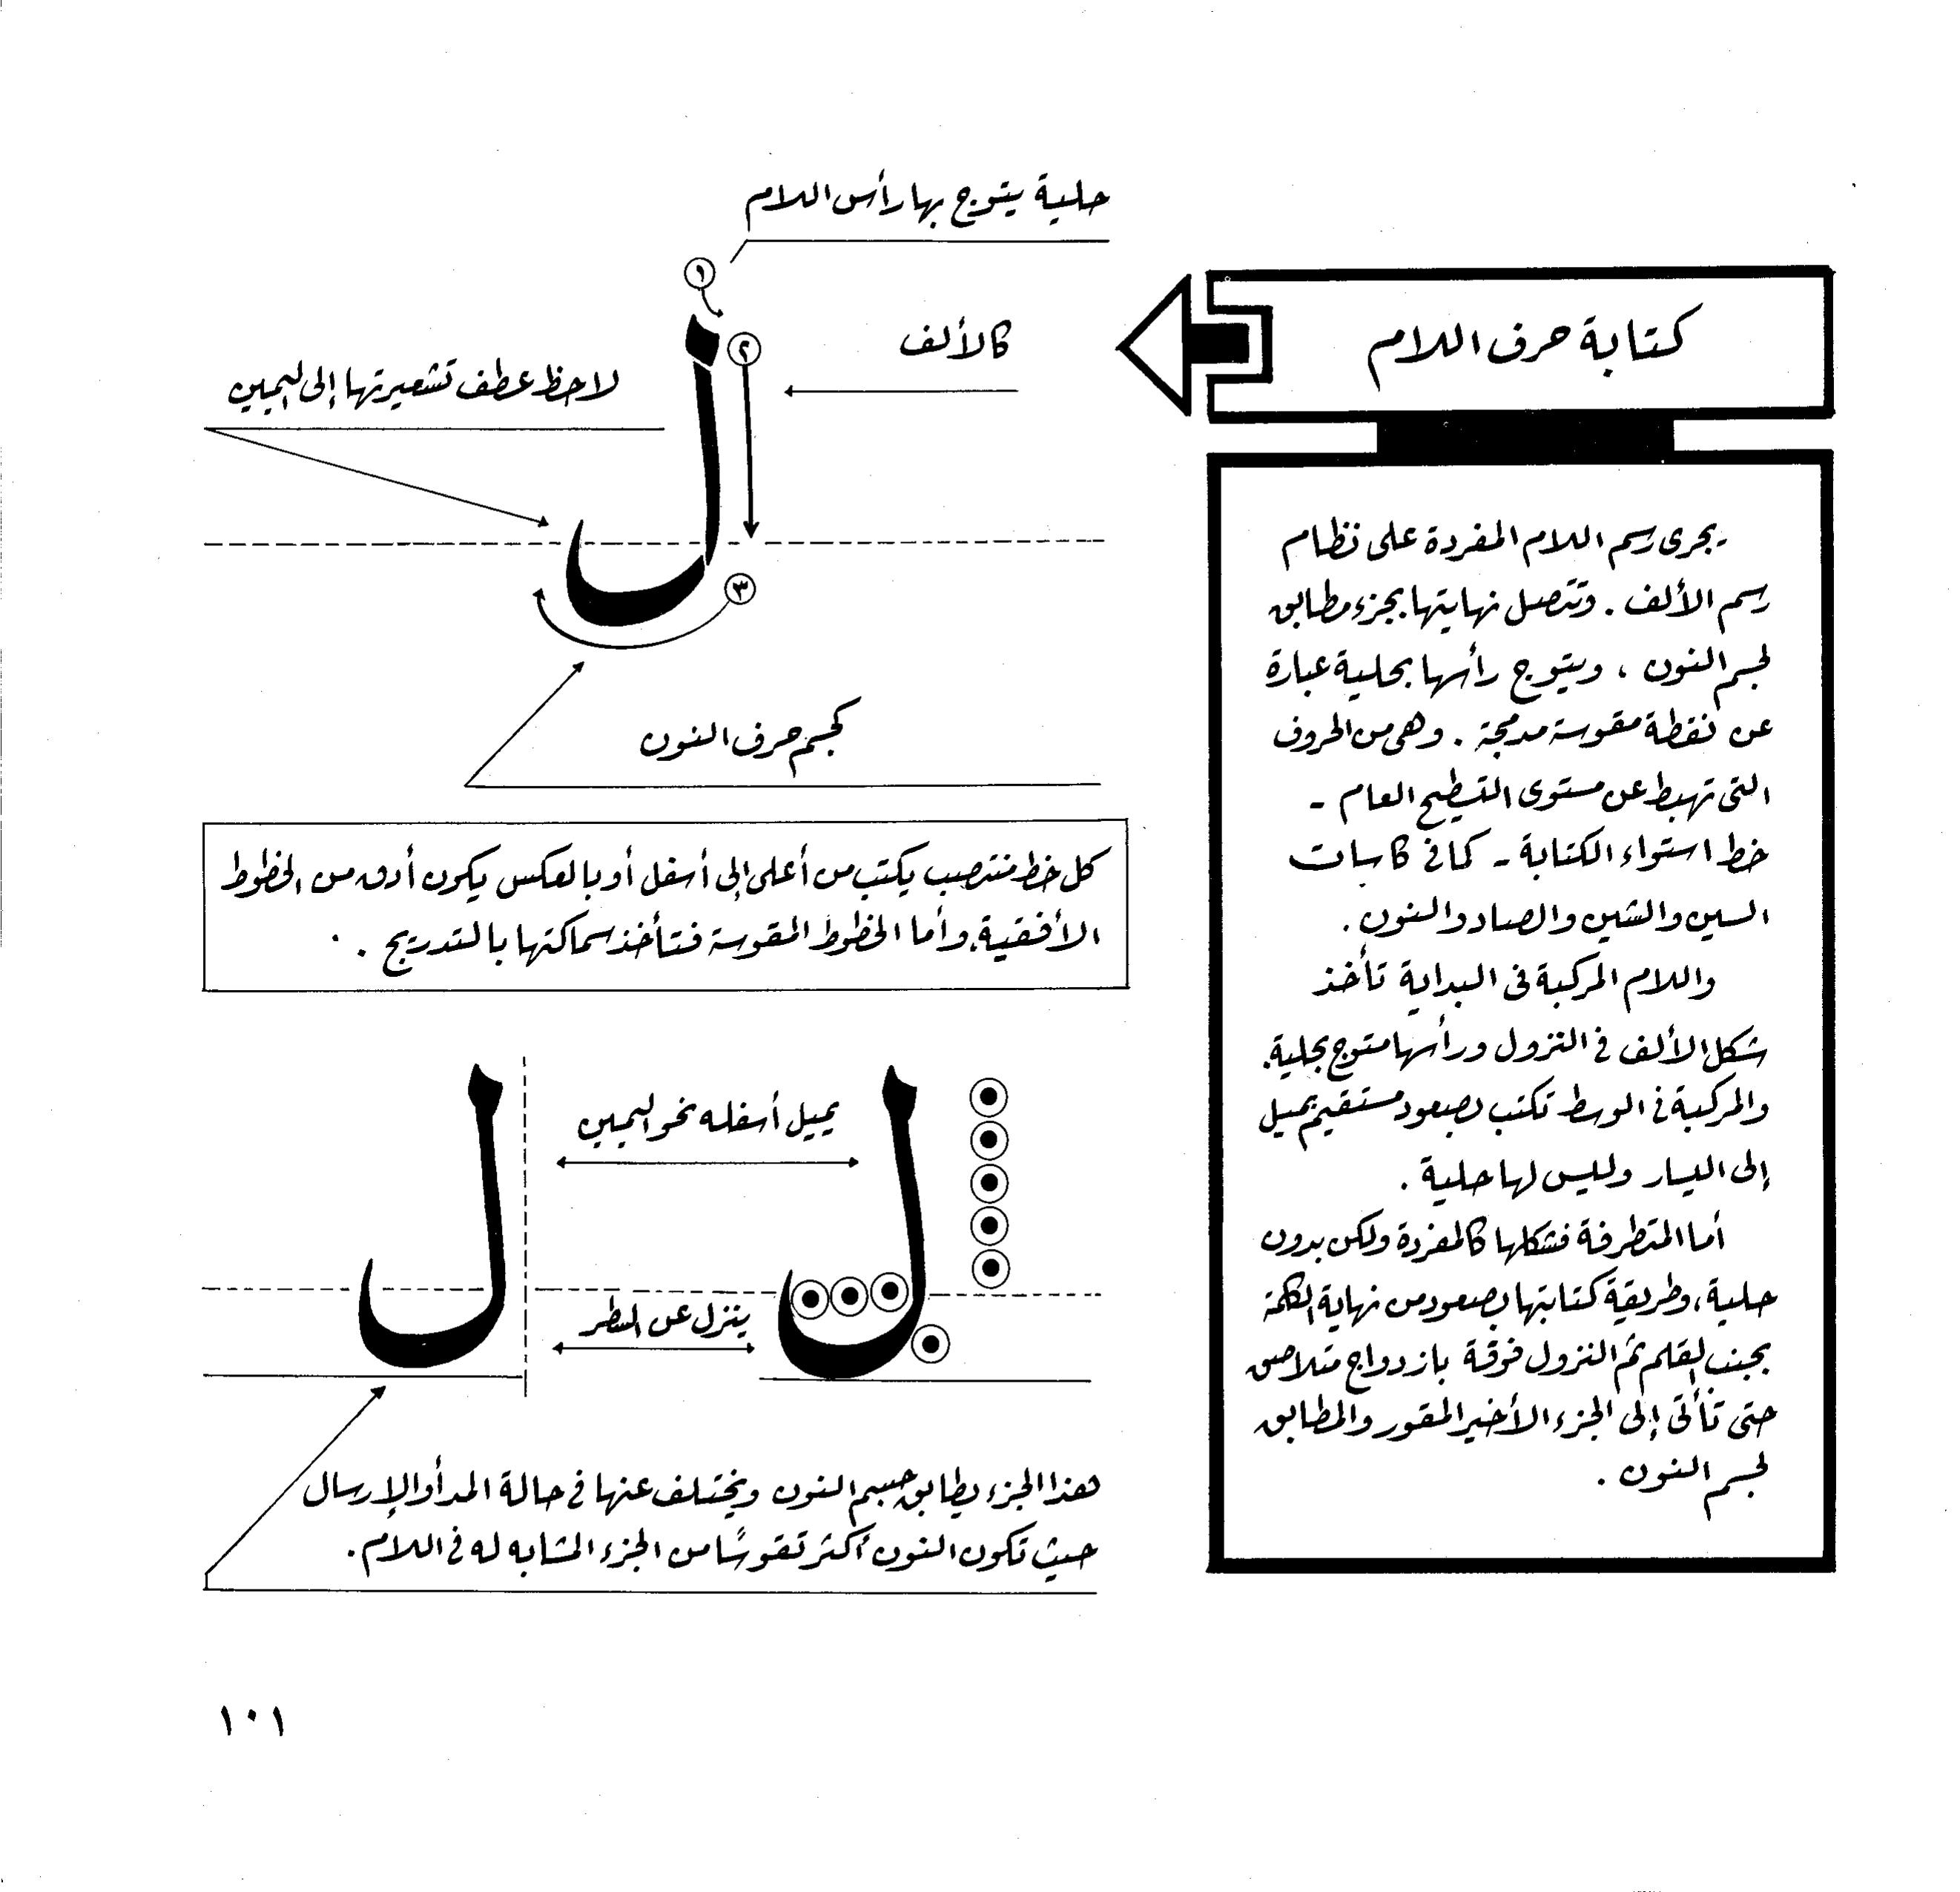 كتابة حرف اللام
يجرى رسم اللام المفردة على نظام
رسم الألف . وتتصل نهايتها بجزء مطابق
لجسم النون ، ويتوج رأسها بحلية عبارة
عن نقطة مقوسة مدمجة . وهى من الحروف
التى تهبط عن مستوى التسطيح العام -
خط استواء الكتابة - كما فى كاسات
السين والشين والصاد والنون .
واللام المركبة فى البداية تأخذ
شكل الألف فى النزول ورأسها متوج بحلية .
والمركبة فى الوسط تكتب بصعود مستقيم يميل
إلى اليسار وليس لها حلية .
أما المتطرفة فشكلها كالمفردة ولكن بدون
حلية ، وطريقة كتابتها بصعود من نهاية الكلمة
بجنب القلم ثم النزول فوقة بازدواج متلاصق
حتى تأتى إلى الجزء الأخير المقور والمطابق
لجسم النون .
حلية يتوج بها رأس اللام
١
كالألف
٢
لاحظ عطف تشعيرتها إلى اليمين
٣
كجسم حرف النون
كل خط منتصب يكتب من أعلى إلى أسفل أو بالعكس يكون أدق من الخطوط
الأفقية ، وأما الخطوط المقوسة فتأخذ سماكتها بالتدريج .
يميل أسفله نحو اليمين
ينزل عن السطر
هذا الجزء يطابق جسم النون ويختلف عنها فى حالة المد أو الإرسال
حيث تكون النون أكثر تقوسًا من الجزء المشابه له فى اللام .
١٠١